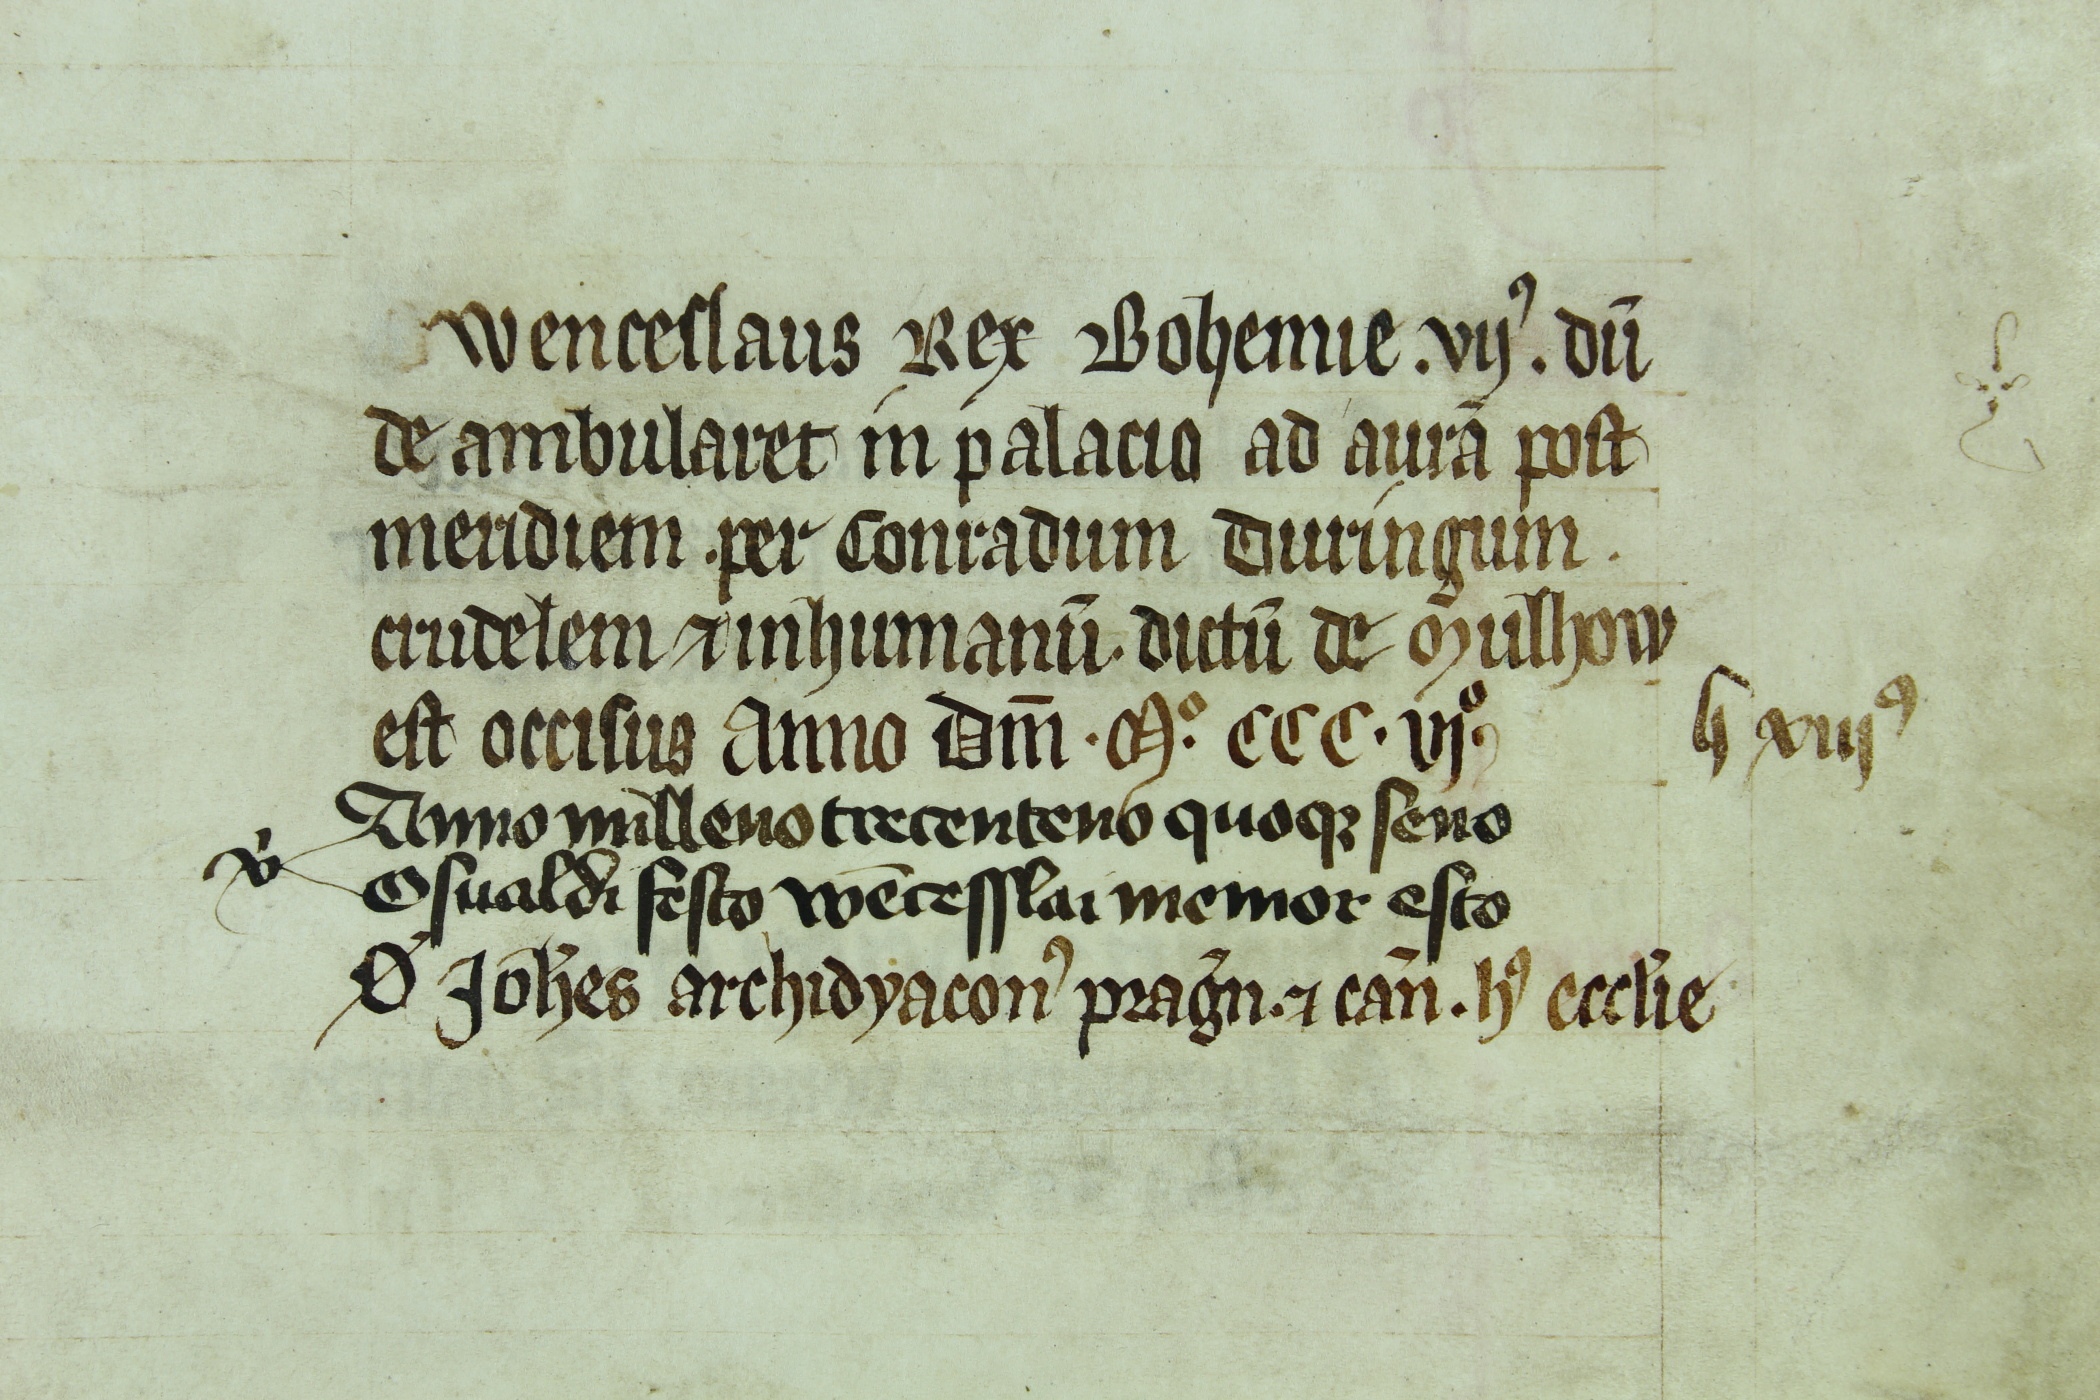 Wenceslaus Rex Bohemie .vijꝰ. dū
de ambularet in palacio ad aurā post
meridiem .per Conradum Duringum.
crudelem ⁊ inhumanū. dictū de Mulhow
est occisus Anno Dm̄ .Mº. CCC. vjº.
xiiijꝰ
Anno milleno trecenteno quoqꝫ seno
v̓
Osualdi festo wēcesslai memor esto
O' Joh̄es archidyaconꝰ praḡn. ⁊ cañ. hꝰ eccl̄ie